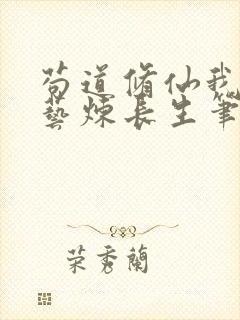 苟道脩仙我
藝煉長生筆
荣秀蘭